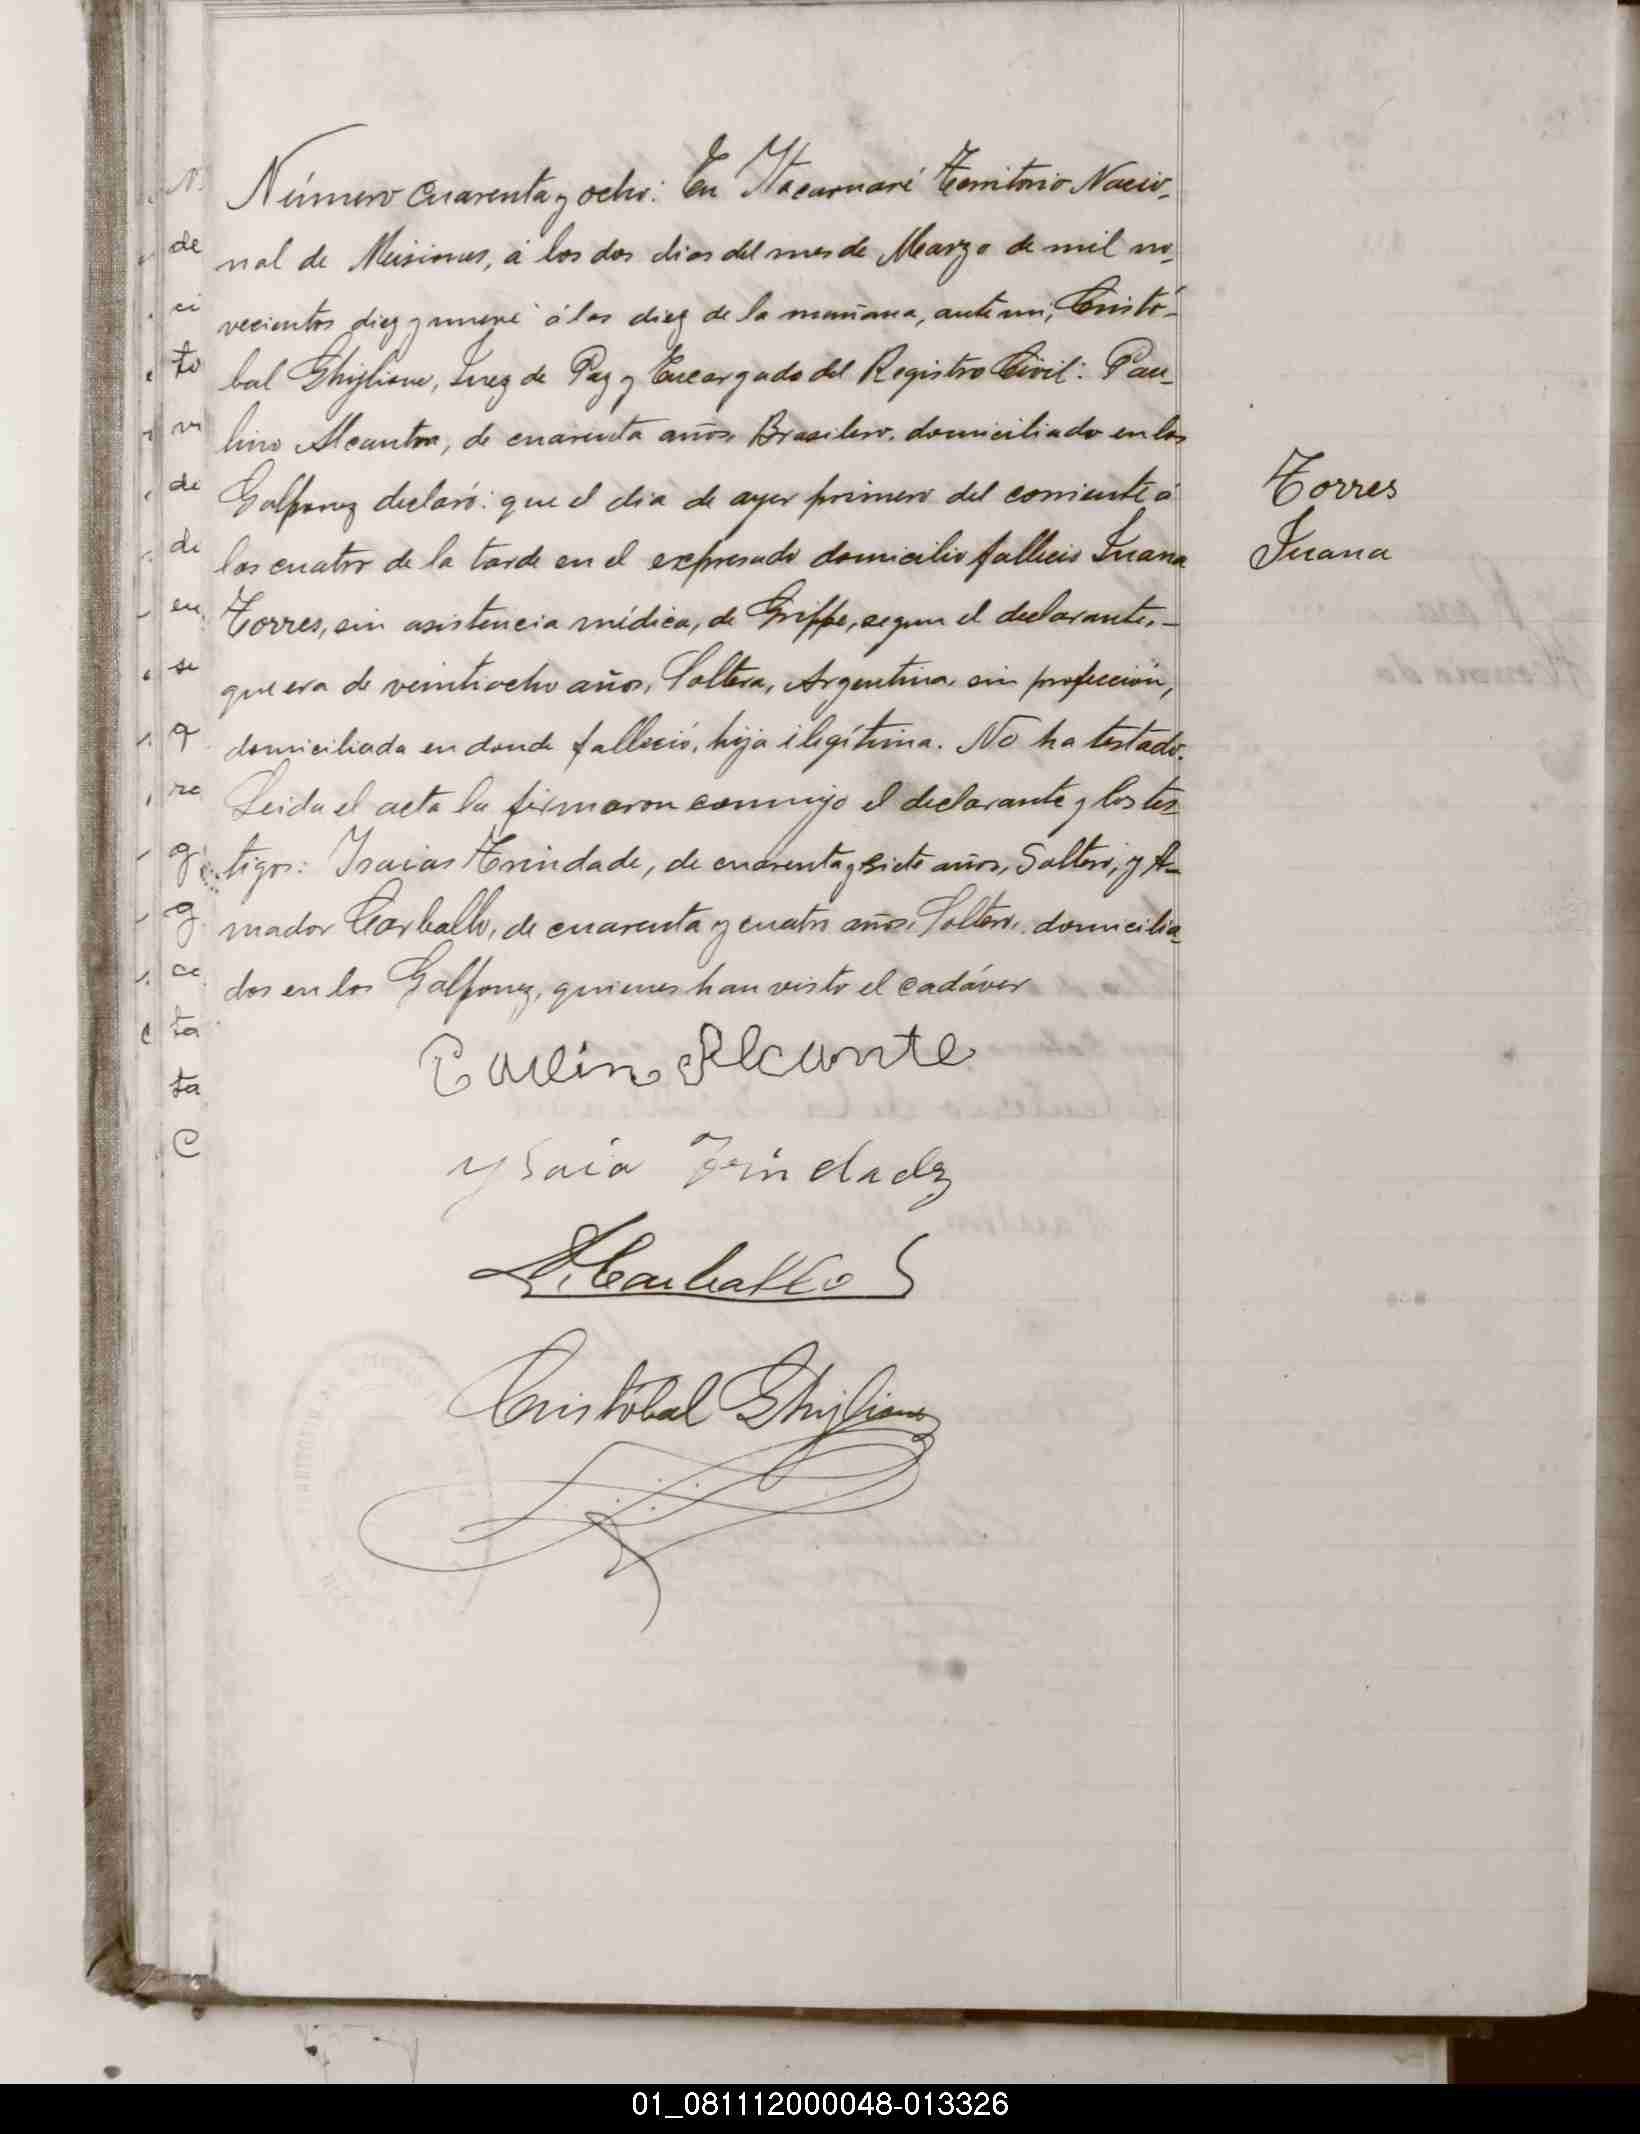 Número cuarenta y ocho: En Itacaruaré Territorio Nacio-
nal de Misiones, á los dos dias del mes de Marzo de mil no-
vecientos diez y nueve á las diez de la mañana, ante mi, Cristó-
bal Ghiglione, Juez de Paz y Encargado del Registro Civil: Pau-
lino Alcantra, de cuarenta años, Brasilero, domiciliado en los
Galponez declaró: que el dia de ayer primero del corriente á
las cuatro de la tarde en el expresado domicilio falleció Juana
Torres, sin asistencia médica, de Grippe, segun el declarante,-
que era de veintiocho años, Soltera, Argentina, sin profección,
domiciliada en donde falleció, hija ilegítima. No ha testado.
Leida el acta la firmaron conmigo el declarante y los tes-
tigos: Isaias Trindade, de cuarenta y siete años, Soltero, y A-
mador Carballo, de cuarenta y cuatro años, Soltero, domicilia-
dos en los Galponez, quienes han visto el cadáver
Torres
Juana
Paulino Alcante
Ysaia Trindadz
A. Carballo
Cristóbal Ghiglione
de
ci
to
vi
de
de
en
se
re
ce
ta
ta
C
01_081112000048-013326